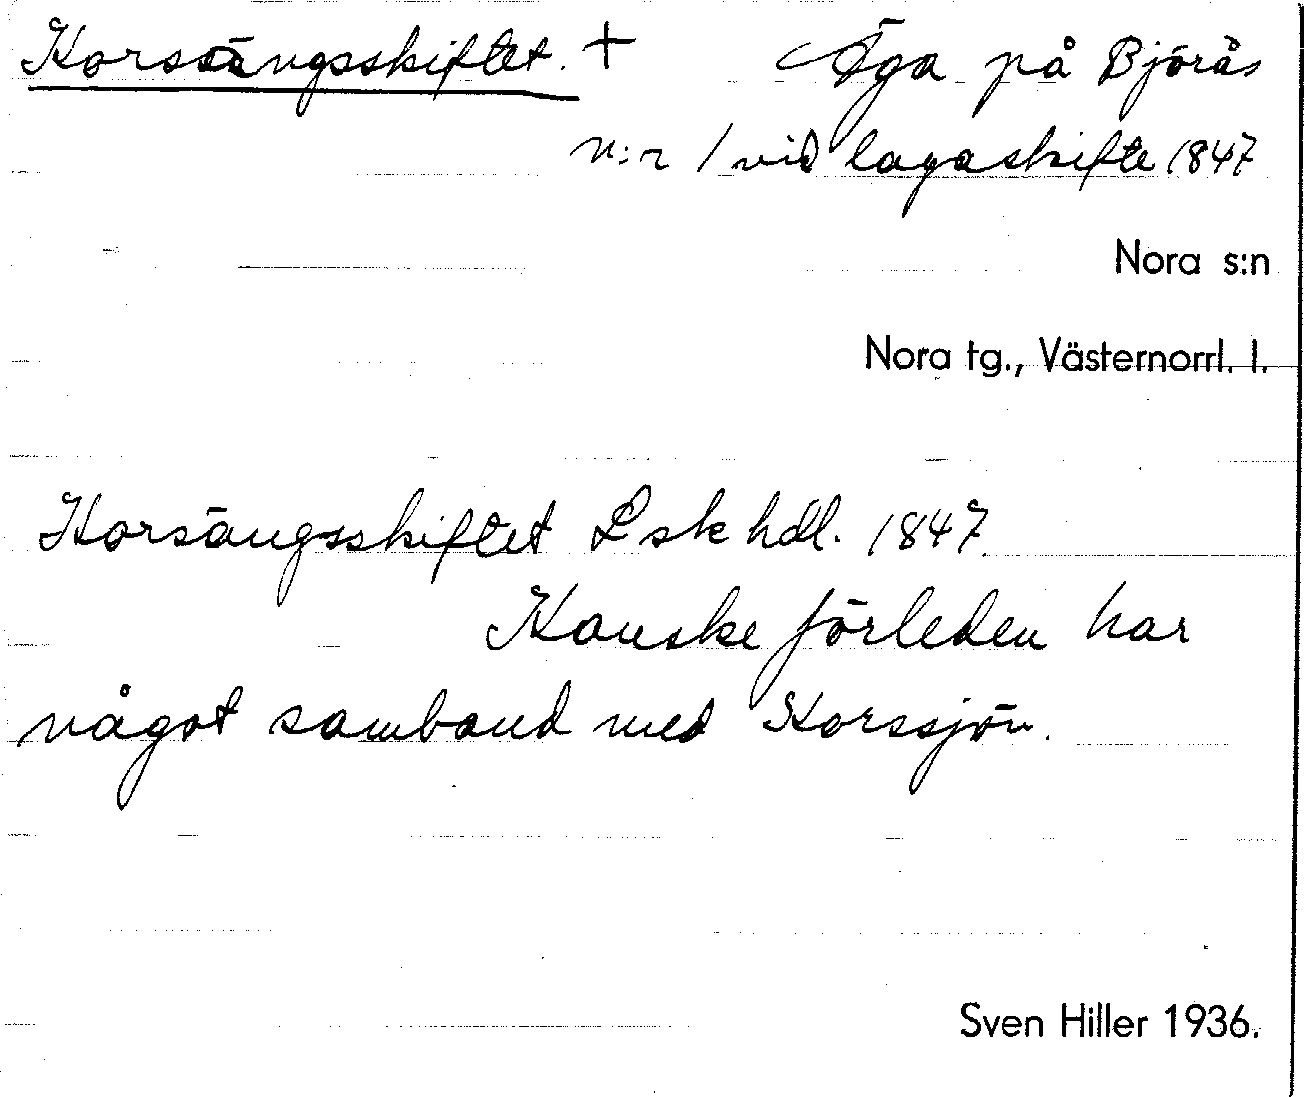 Korsängsskiftet. + Äga på Björås
n:r 1 vid lagaskifte 1847
Nora s:n
Nora tg., Västernorrl. l.
Korsängsskiftet Lsk hdl. 1847
Kanske förleden har
något samband med Korssjön.
Sven Hiller 1936.